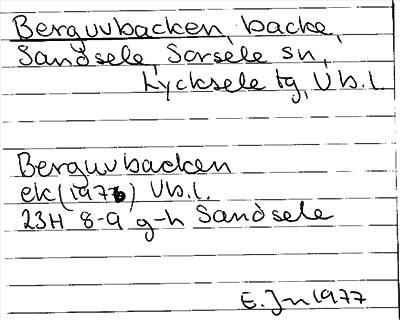 Berguvbacken, backe,
Sandsele, Sorsele sn,
Lycksele tg, Vb.l.
Berguvbacken
ek (1976) Vb.l.
23H 8-9 g-h Sandsele
E. Jn 1977